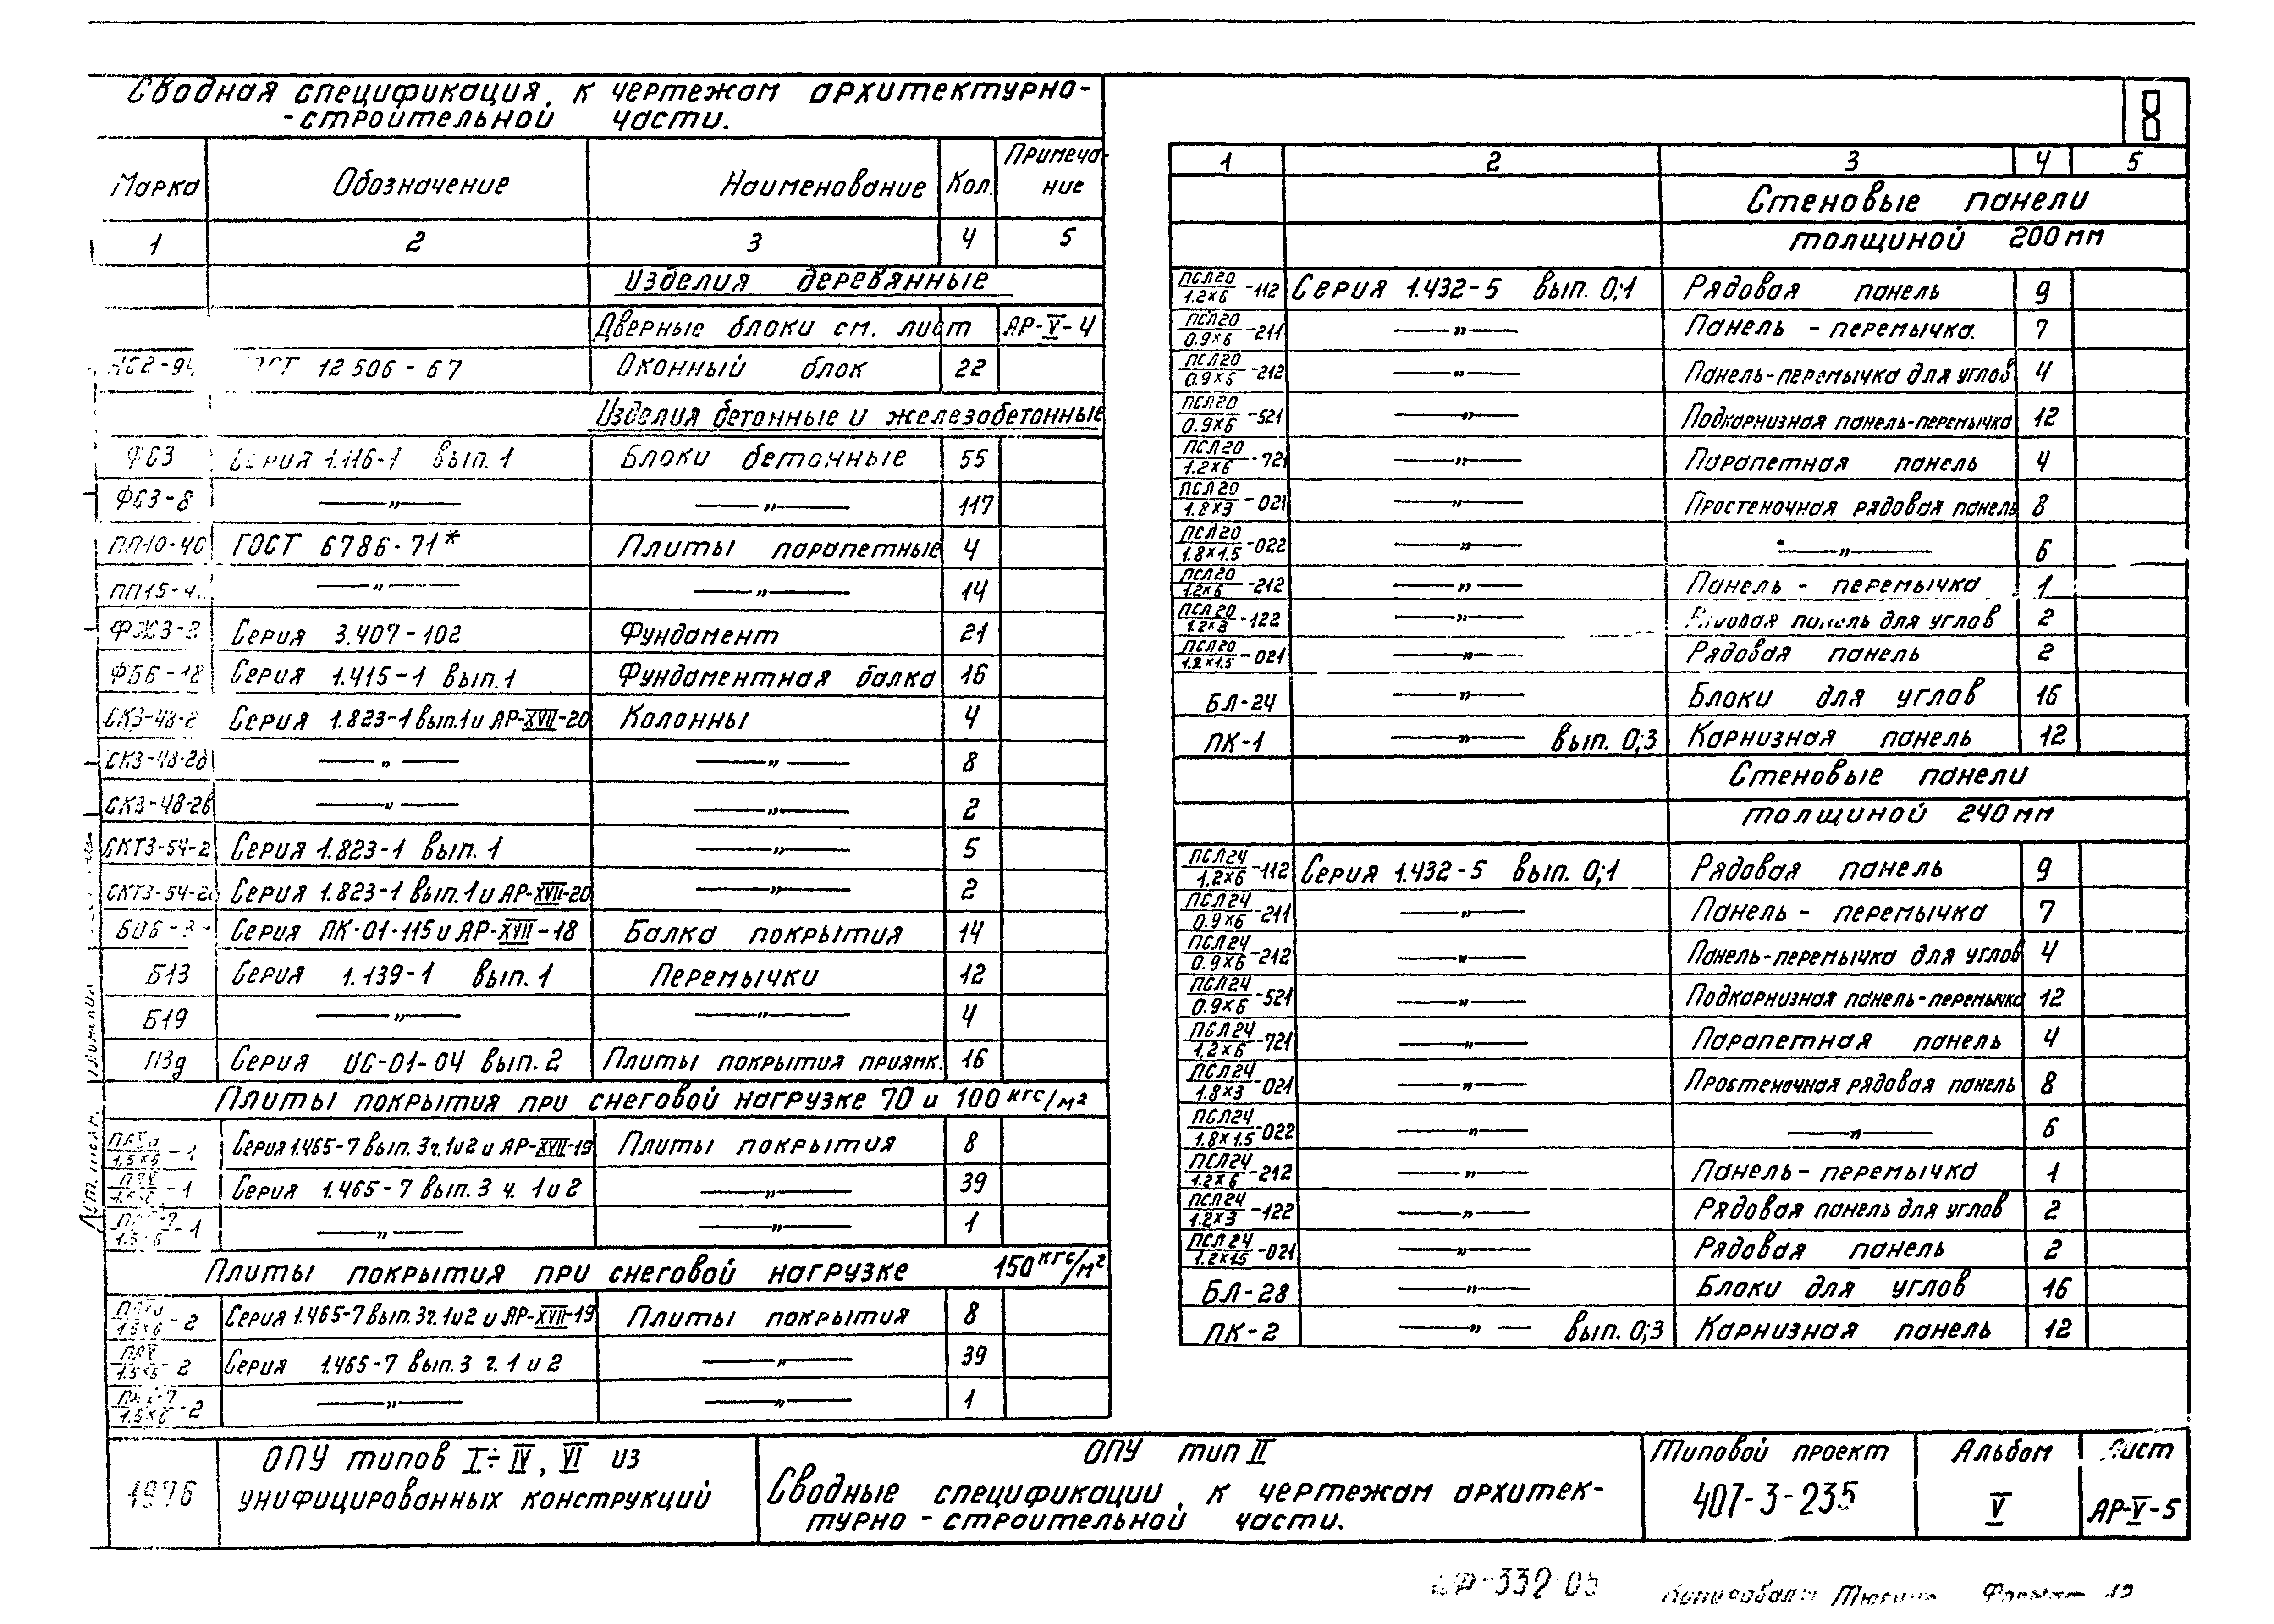 Сводная спецификация, к чертежам архитектурно-
-строительной части.
Марка Обозначение Наименование Кол. Примеча-
ние
1 2 3 4 5
Изделия деревянные
Дверные блоки см. лист АР-V-4
12506-67 Оконный блок 22
Изделия бетонные и железобетонные
ФС3 Серия 1.116-1 вып.1 Блоки бетонные 55
ФС3-8 —„— —„— 117
ПП10-40 ГОСТ 6786-71* Плиты парапетные 4
—„— —„— 14
Серия 3.407-102 Фундамент 21
ФБ6-18 Серия 1.415-1 вып.1 Фундаментная балка 16
СК3-48-2 Серия 1.823-1 вып.1 и АР-XVII-20 Колонны 4
—„— —„— 8
СК3-48-2в —„— —„— 2
СКТ3-54-2 Серия 1.823-1 вып.1 —„— 5
Серия 1.823-1 вып.1 и АР-XVII-20 —„— 2
Серия ПК-01-115 и АР-XVII-18 Балка покрытия 14
Б13 Серия 1.139-1 вып.1 Перемычки 12
Б19 —„— —„— 4
П3д Серия ИС-01-04 вып.2 Плиты покрытия приямк. 16
Плиты покрытия при снеговой нагрузке 70 и 100 кгс/м²
Серия 1.465-7 вып.3 ч.1и2 и АР-XVII-19 Плиты покрытия 8
Серия 1.465-7 вып.3 ч.1и2 —„— 39
—„— —„— 1
Плиты покрытия при снеговой нагрузке 150 кгс/м²
Серия 1.465-7 вып.3 ч.1и2 и АР-XVII-19 Плиты покрытия 8
Серия 1.465-7 вып.3 ч.1и2 —„— 39
—„— —„— 1
8
1 2 3 4 5
Стеновые панели
толщиной 200мм
ПСЛ20/1.2×6-112 Серия 1.432-5 вып.0;1 Рядовая панель 9
ПСЛ20/0.9×6-211 —„— Панель-перемычка. 7
ПСЛ20/0.9×6-212 —„— Панель-перемычка для углов 4
ПСЛ20/0.9×6-521 —„— Подкарнизная панель-перемычка 12
ПСЛ20/1.2×6-721 —„— Парапетная панель 4
ПСЛ20/1.8×3-021 —„— Простеночная рядовая панель 8
ПСЛ20/1.8×1.5-022 —„— —„— 6
ПСЛ20/1.2×6-212 —„— Панель-перемычка 1
ПСЛ20/1.2×3-122 —„— Рядовая панель для углов 2
ПСЛ20/1.2×1.5-021 —„— Рядовая панель 2
БЛ-24 —„— Блоки для углов 16
ПК-1 —„— вып.0;3 Карнизная панель 12
Стеновые панели
толщиной 240мм
ПСЛ24/1.2×6-112 Серия 1.432-5 вып.0;1 Рядовая панель 9
ПСЛ24/0.9×6-211 —„— Панель-перемычка 7
ПСЛ24/0.9×6-212 —„— Панель-перемычка для углов 4
ПСЛ24/0.9×6-521 —„— Подкарнизная панель-перемычка 12
ПСЛ24/1.2×6-721 —„— Парапетная панель 4
ПСЛ24/1.8×3-021 —„— Простеночная рядовая панель 8
ПСЛ24/1.8×1.5-022 —„— —„— 6
ПСЛ24/1.2×6-212 —„— Панель-перемычка 1
ПСЛ24/1.2×3-122 —„— Рядовая панель для углов 2
ПСЛ24/1.2×1.5-021 —„— Рядовая панель 2
БЛ-28 —„— Блоки для углов 16
ПК-2 —„— вып.0;3 Карнизная панель 12
1976
ОПУ типов I÷IV, VI из
унифицированных конструкций
ОПУ тип II
Сводные спецификации, к чертежам архитек-
турно-строительной части.
Типовой проект
407-3-235
Альбом
V
Лист
АР-V-5
Копировал: